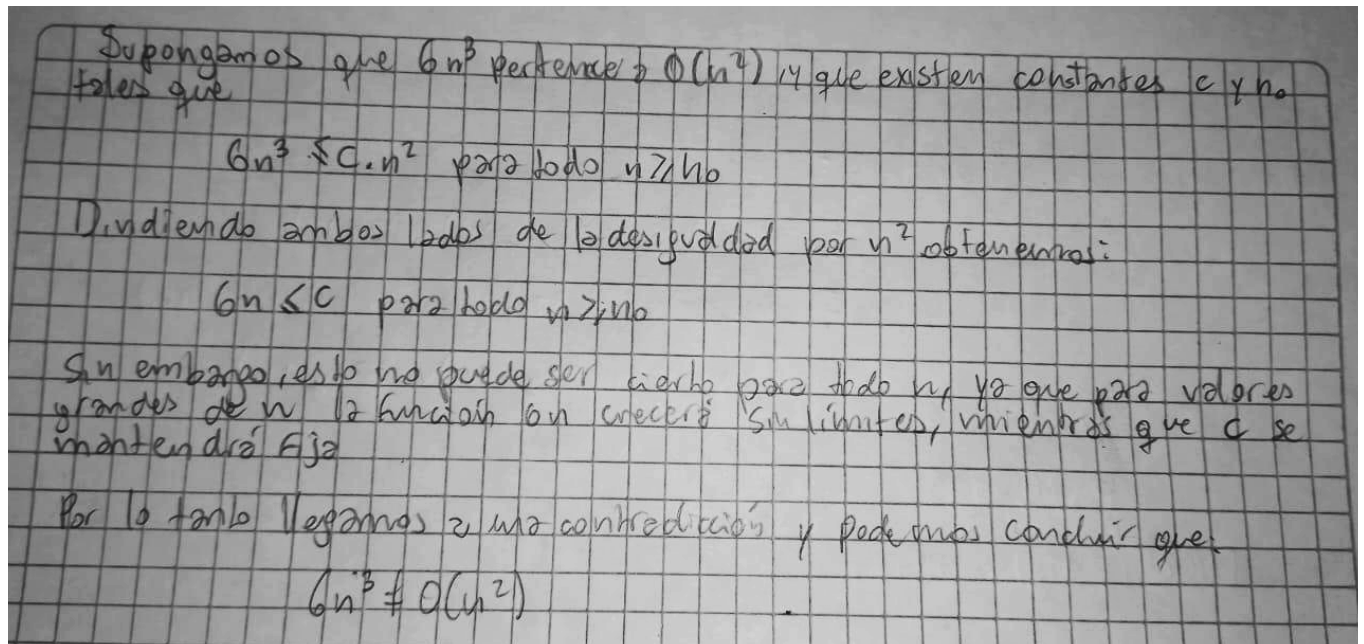 Supongamos que 6n³ pertenece a O(n²), y que existen constantes c y n₀
tales que
6n³ ≤ C.n² para todo n ≥ n₀
Dividiendo ambos lados de la desigualdad por n² obtenemos:
6n ≤ C para todo n ≥ n₀
Sin embargo, esto no puede ser cierto para todo n, ya que para valores
grandes de n la función 6n crecerá sin límites, mientras que C se
mantendrá fija
Por lo tanto llegamos a una contradicción y podemos concluir que.
6n³ ≠ O(n²)